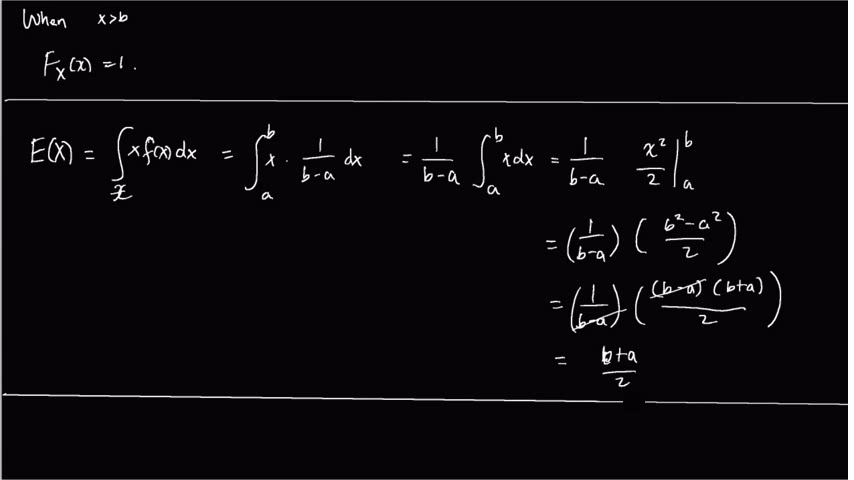 When x>b
F_X(x) = 1.
E(X) = ∫_x x f(x) dx = ∫_a^b x · 1/(b-a) dx = 1/(b-a) ∫_a^b x dx = 1/(b-a) x²/2 |_a^b
= (1/(b-a)) ((b²-a²)/2)
= (1/(b-a)) ((b-a)(b+a)/2)
= (b+a)/2